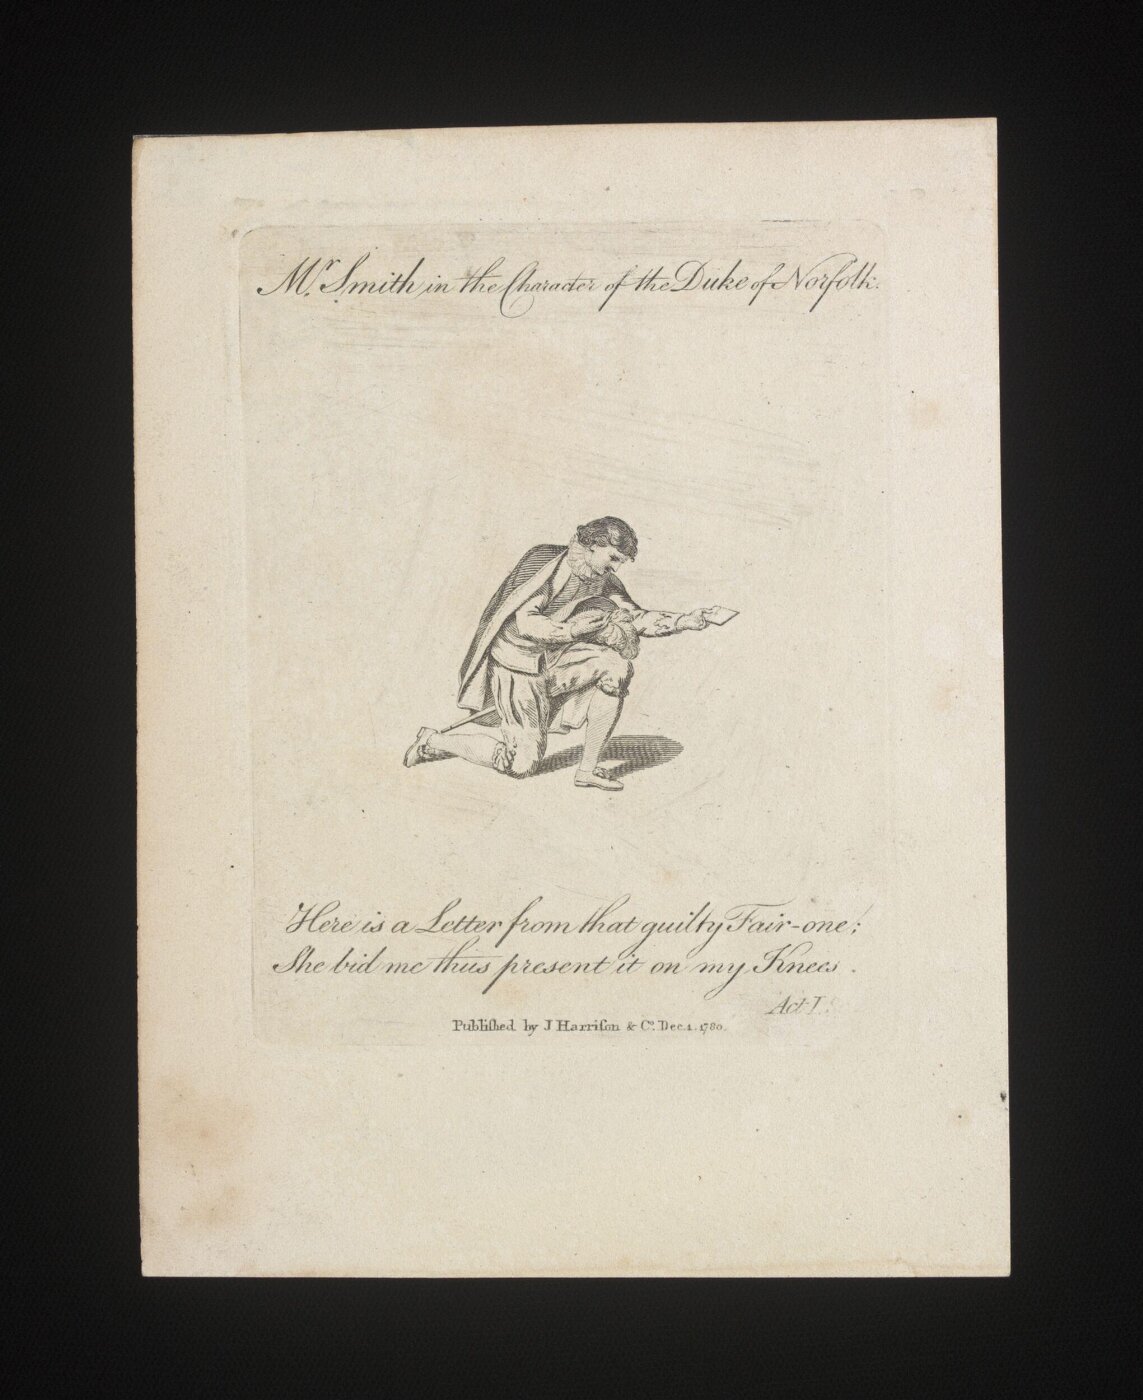 Mr. Smith in the Character of the Duke of Norfolk.
Here is a Letter from that guilty Fair-one;
She bid me thus present it on my Knees.
Act I.
Publiſhed by J Harriſon & Co. Dec. 1. 1780.